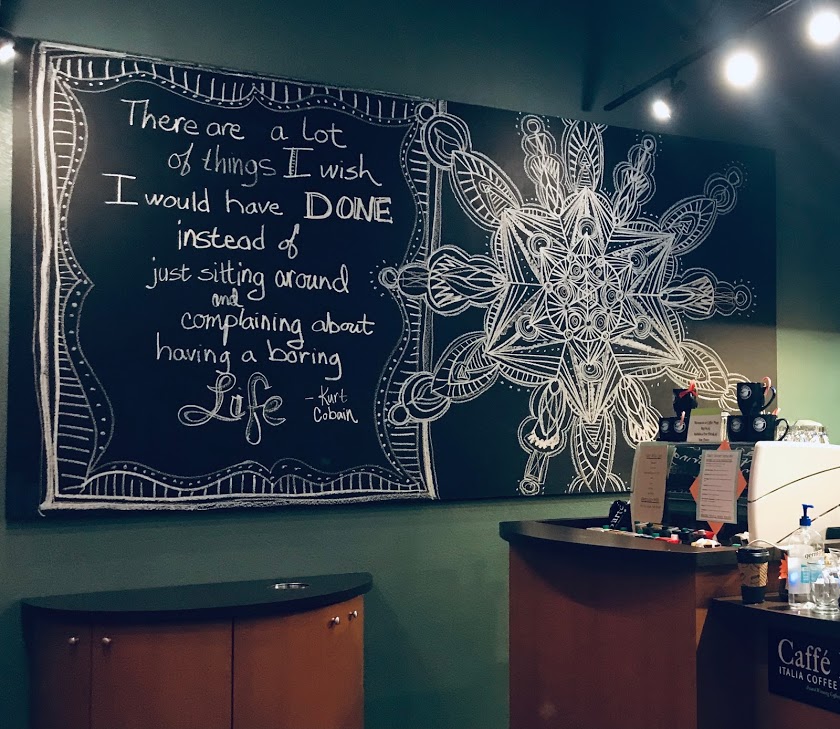 There are a lot
of things I wish
I would have DONE
instead of
just sitting around
and
complaining about
having a boring
Life
- Kurt
Cobain
Caffé
ITALIA COFFEE